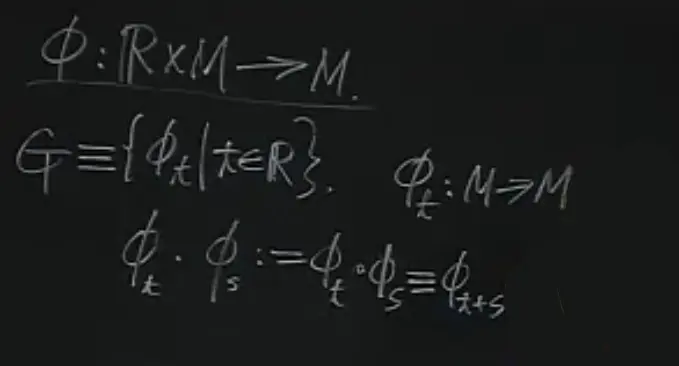 ϕ : ℝ×M → M.
G ≡ {ϕ_t | t∈ℝ}. ϕ_t : M → M
ϕ_t · ϕ_s := ϕ_t ∘ ϕ_s ≡ ϕ_{t+s}